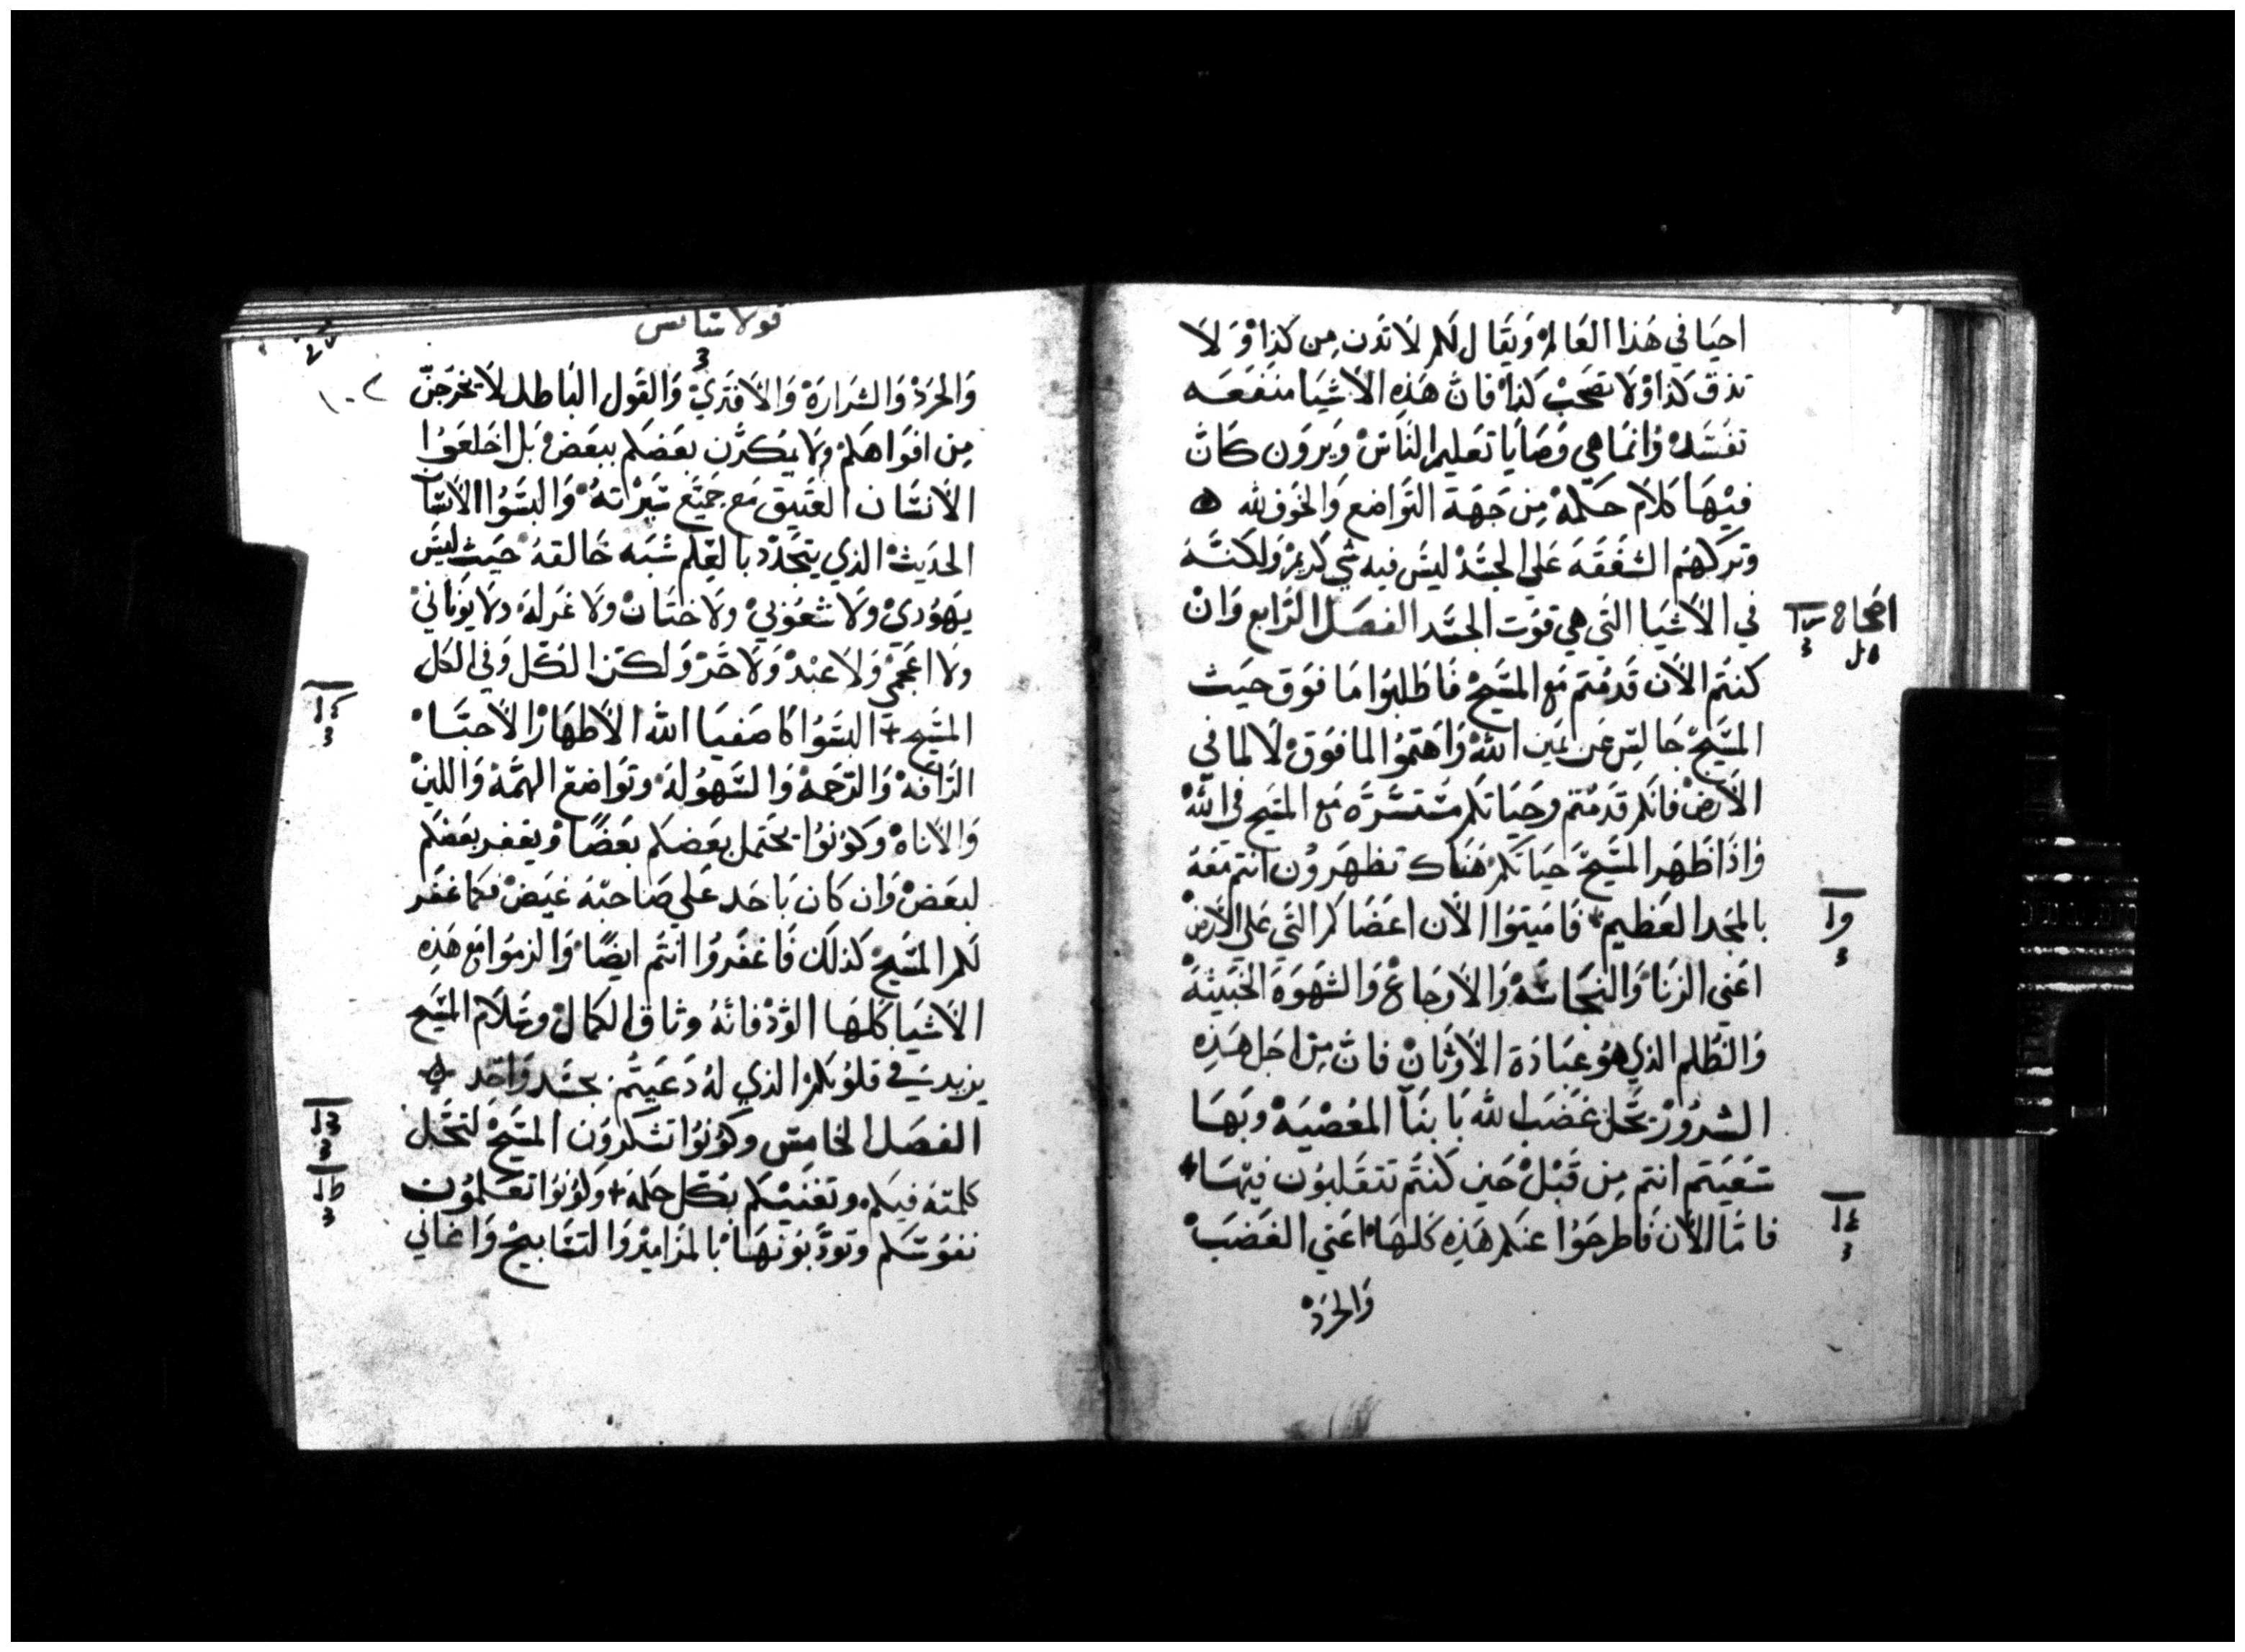 احيَا في هَذا العَالمْ وَيقَال لكم لاَ تدَن مِن كذا وْ وَلاَ
تذق كذا وْلاَ تصَحَبْ كذا فان هَذِه الاَشيَا منفعَه
تفسَد وْانمَا هي وَصَايَا تعَليم النَاسْ وَيرَون كَان
فيْهَا كلاَم حَكمة مِن جَهَة التوَاضع وَالخوَف لله
وَترَكهُم الشفَقَة عَلي الجسَد ليسَ فيه شي كريمْ وَلكنهُ
في الاَشيَا التَي هي قوَت الجسَد الفصَل الرَابع وَانْ
اصحاح
كنتم الاَن قَد مُتم مَع المسَيحْ فَاطلبوُا مَا فوَق حيَث
المسَيحْ جَالسِ عَن يمَين اللهْ وَاهَتموُا لما فوَقْ لاَ لما في
الاَرضْ فانكم قد متم وحَيَاتكم مسَتسَرَه مَع المسَيح في اللهْ
وْاذَا ظهَر المسَيحْ حيَاتكمْ هنَاك تظهَروُن انتم معَهُ
بالمجَد العَظيم فَاميتوَا الاَن اعَضَاكم التَي عَلي الاَرضْ
اعَني الزنَا وَالنجَاسَه وَالاَوجَاعْ وَالشهَوَة الخَبيثهْ
وَالظُلم الذي هُو عبَادَة الاَوثَانْ فان مِن اجَل هَذِه
الشروُرْ يحَل غضَب الله بَابنَآ المعْصيَه وبهَا
سَعَيَتم انتم مِن قَبْل حَين كَنتم تتقَلبوُن فيهَا
فامَا الاَن فَاطرحَوُا عنكم هَذِه كَلهَا اعَني الغَضبَ
وَالحَردْ
قولاسايس
١٠٢
وَالحرَدْ وَالشرَارَة وَالاَفتريْ وَالقوَل البَاطل لاَ يخرَجنّ
مِن افوَاهكمْ وَلا يكذبن بعَضكم ببعَض بَل اخلعَوُا
الاَنسَان العَتيق مَع جَميَع سَيرْاتهُ وَالبسَوُا الاَنسَان
الحدَيث الذي يتجَدَد بالعِلم شبَه خَالقهُ حيَث ليسَ
يهَوُديْ ولاَ شعُوبيْ ولاَ ختَان ولاَ غرَلهْ ولاَ يوُنانيْ
ولاَ اعَجمي وَلاَ عَبْد وَلاَ حَرْ وَلكن الكَل وَفي الكَل
المسَيح البسَوُا كَاصَفيَا الله الاَطهَارْ الاَحبَا
الرَافهْ وَالرَحمهْ وَالسَهوُلهْ وتوَاضع الهمَة وَاللينْ
وَالاَناهْ وَكوُنوُا يحتَمل بعَضكم بعَضًا وْيغفر بعَضكم
لبعَض وَان كَان بَاحَد عَلي صَاحبَه غيَض فكمَا غفَر
لكم المسَيحْ كذلك فَاغفرَوُا انتم ايضًا وَالزموُا مَع هَذِه
الاَشيَا كَلهَا الوَد فانَه وثاق الكمَالْ وَسَلاَم المسَيح
يزيد في قلوُبكم الذي لهُ دَعيَتم بجسَد وَاحَد
الفصَل الخامسَ وكوُنوُا تشَكروَن المسَيحْ لتحَل
كلمتهُ فيكم وتغنيَكم بكل حكمَه وَكوُنوُا تعَلموُن
نفوُسَكم وتودَبوُنهَا بالمزَاميرْ وَالتسَابيحْ وَاغَاني